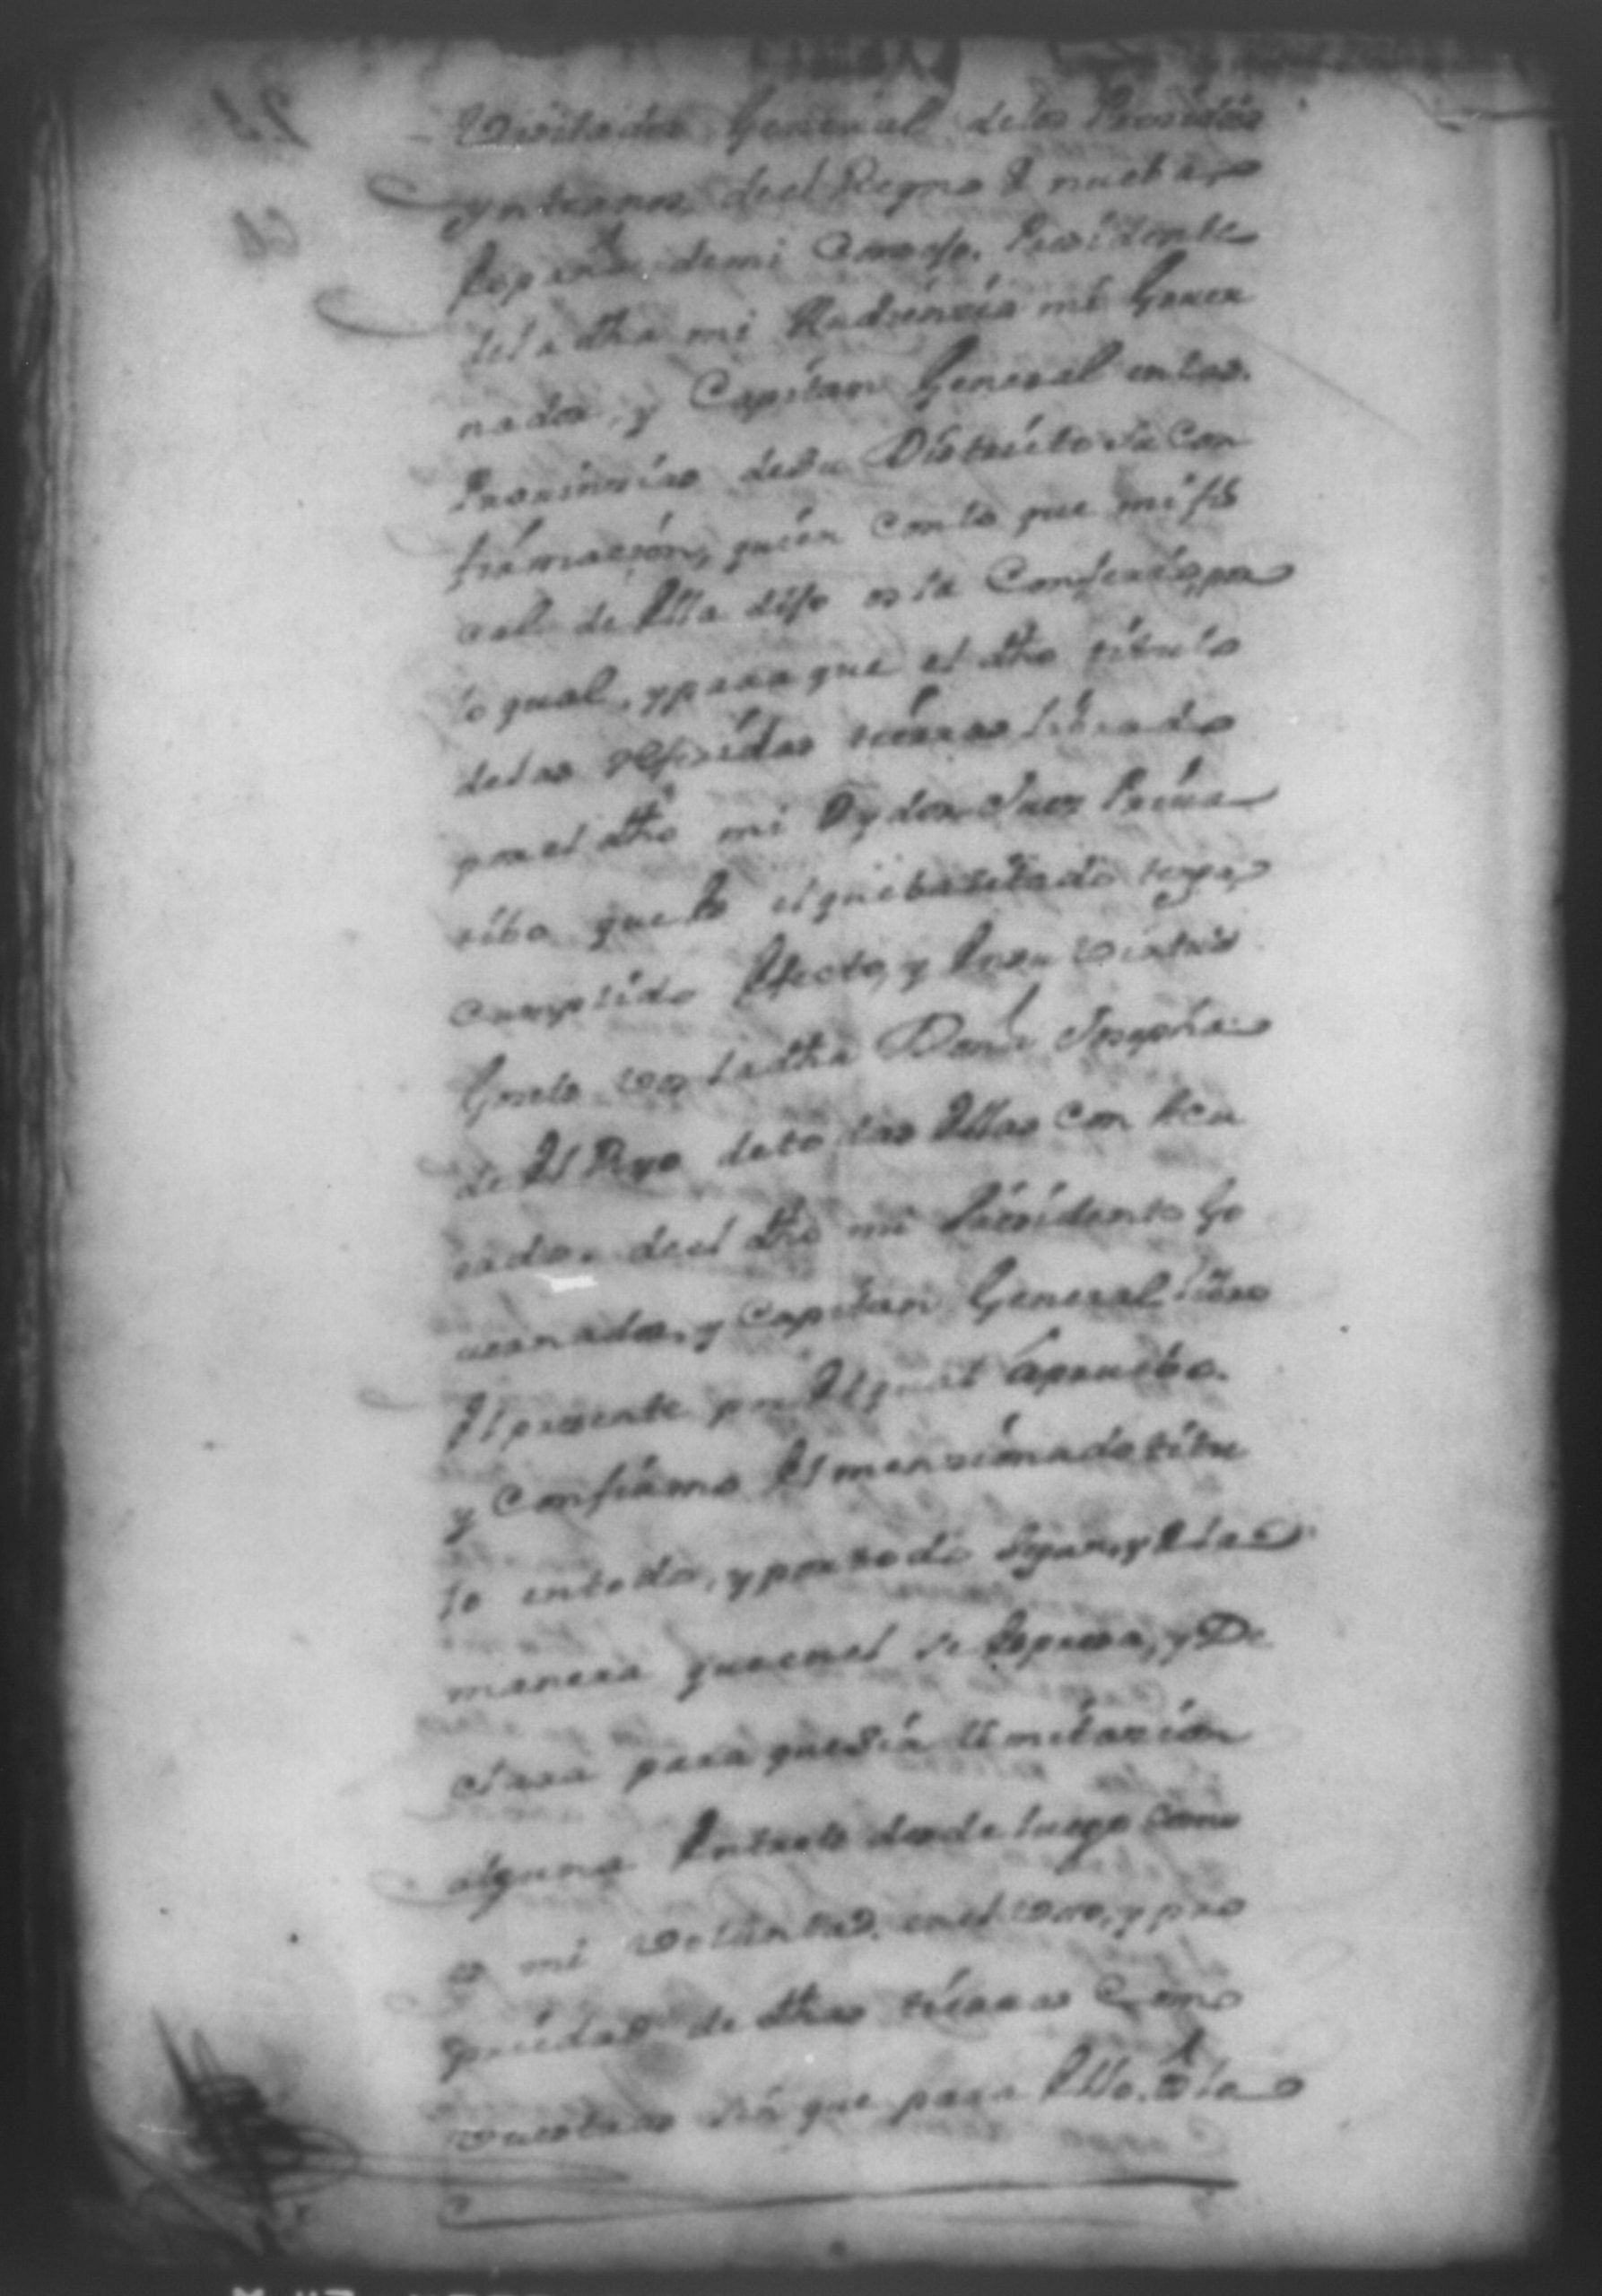 Visitador General de los Presidios
ynternos, de el Reyno de nueba
españa de mi Consejo, Presidente
de la dha mi Audiencia mi Gover
nador, y Capitan General en las
Provincias de su Districto su Con
firmacion, quien con lo que mi fis
cal de ella dijo os la Confirió, por
lo qual, y para que el dho titulo
de las referidas tierras librado
por el dho mi Oydor Juez Priva
tibo que lo el que ba zitado tenga
cumplido efecto, y en su virtud
Goceis vos la dha Doña Josepha
de el Reyo de todas ellas con Acu
erdo, de el dho mi Presidente Go
vernador, y Capitan General libro
el presente por el qual apruebo,
y Confirmo el menzionado titu
lo en todo, y por todo segun, y a la
manera que en el se Expresa, y De
clara para que sin limitazion
alguna Entreis desde luego como
es mi voluntad, en el Uso, y pro
priedad de dhas tierras Como
vuestras sin que para ello, a la